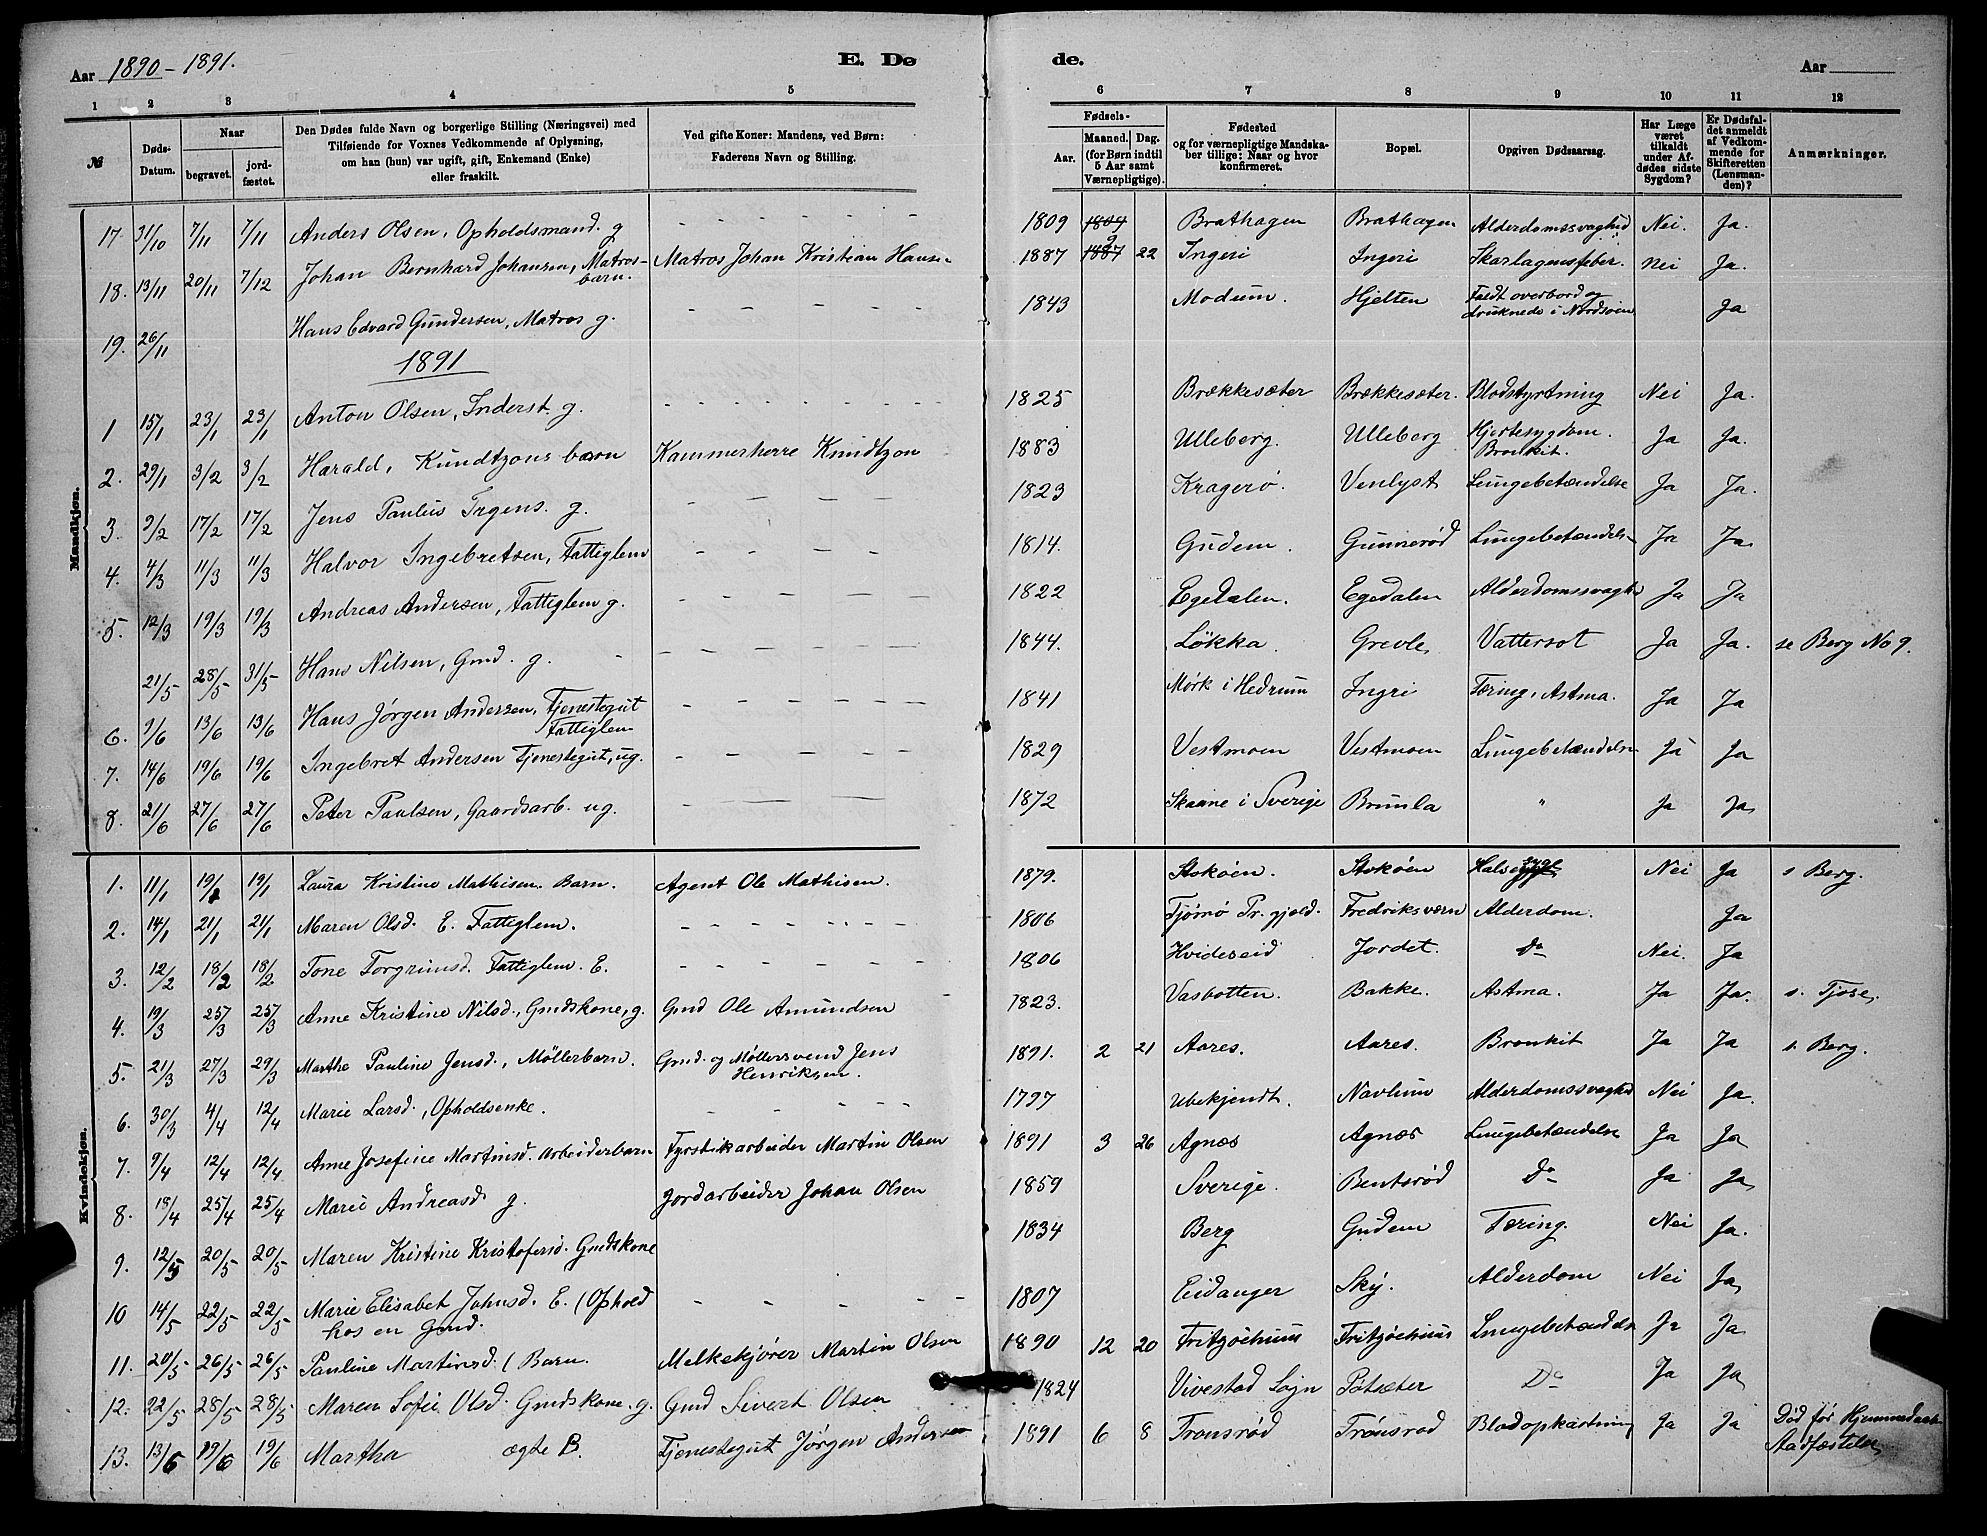 Aar 1890-1891.
E. Dø
de.
Aar
1 2 3 4 5 6 7 8 9 10 11 12
№ Døds-Datum. Naar begravet. jord-fæstet. Den Dødes fulde Navn og borgerlige Stilling (Næringsvei) med Tilføiende for Voxnes Vedkommende af Oplysning, om han (hun) var ugift, gift, Enkemand (Enke) eller fraskilt. Ved gifte Koner: Mandens, ved Børn: Faderens Navn og Stilling. Fødsels- Aar. Maaned. Dag. (for Børn indtil 5 Aar samt Værnepligtige). Fødested og for værnepligtige Mandskaber tillige: Naar og hvor konfirmeret. Bopæl. Opgiven Dødsaarsag. Har Læge været tilkaldt under Afdødes sidste Sygdom? Er Dødsfaldet anmeldt af Vedkommende for Skifteretten (Lensmanden)? Anmærkninger.
Mandkjøn.
17. 31/10 7/11 7/11 Anders Olsen, Opholdsmand. g - - - - - 1809 1809 Brathagen Brathagen Alderdomssvaghed Nei. Ja.
18. 13/11 20/11 7/12 Johan Bernhard Johansen, Matros-barn. Matros Johan Kristian Hansen 1887 1887 9 22 Ingeri Ingeri Skarlagensfeber. Nei Ja.
19. 26/11 Hans Edvard Gundersen, Matros g. - - - - - 1843 Modum. Hjelten Faldt overbord og druknede i Nordsøen Ja
1891
1 15/1 23/1 23/1 Anton Olsen, Inderst g. - - - - - 1825 Brækkesæter Brækkesæter. Blodstyrtning Nei Ja.
2. 29/1 3/2 3/2 Harald, Kundtzons barn Kammerherre Knudtzon 1883 Ulleberg. Ulleberg Hjertesygdom. Bronkit. Ja Ja.
3. 9/2 17/2 17/2 Jens Paulus Irgens. g. - - - - - 1823 Kragerø. Venlyst Lungebetændelse Ja Ja.
4. 4/3 11/3 11/3 Halvor Ingebretsen, Fattiglem - - - - - 1814. Gudem. Gunnerød Lungebetændelse Ja Ja
5. 12/3 19/3 19/3 Andreas Andersen, Fattiglem g. - - - - - 1822 Egedalen. Egedalen Alderdomssvaghd Ja Ja
21/5 28/5 31/5 Hans Nilsen, Gmd. g. - - - - - 1844. Løkka. Grevle, Vattersot Ja Ja. se Berg No 9.
6. 9/6 13/6 13/6 Hans Jørgen Andersen, Tjenestegut Fattiglem - - - - - 1841 Mørk i Hedrum Ingri Tæring, Astma. Ja Ja
7. 14/6 19/6 19/6 Ingebret Andersen Tjenestegut, ug. - - - - - 1829 Vestmoen Vestmoen Lungebetændelse Ja Ja
8. 21/6 27/6 27/6 Peter Paulsen, Gaardsarb. ug. - - - - 1872 Skaane i Sverige Brunla " Ja Ja
Kvindekjøn.
1. 11/1 19/1 19/1 Laura Kristine Mathisen. Barn. Agent Ole Mathisen. 1879. Stokøen. Stokøen Halssyge Nei Ja s Berg.
2. 14/1 21/1 21/1 Maren Olsd. E. Fattiglem. - - - - - 1806 Tjømø Pr. gjeld. Fredriksværn Alderdom. Ja
3. 12/2 18/2 18/2 Tone Torgrimsd. Fattiglem. E. - - - - - 1806 Hvideseid Jordet. Do Nei. Ja
4. 19/3 25/3 25/3 Anne Kristine Nilsd., Gmdskone, g. Gmd Ole Amundsen 1823. Vasbotten. Bakke. Astma. Ja Ja. s. Tjøse.
5. 21/3 27/3 29/3 Marthe Pauline Jensd., Møllerbarn. Gmd. og Møllersvend Jens Henriksen. 1891. 2 21 Aares. Aares. Bronkit Ja Ja s. Berg.
6. 30/3 4/4 12/4 Marie Larsd., Opholdsenke. - - - - - 1797 Ubekjendt. Navlum Alderdomssvaghed Nei Ja.
7. 9/4 12/4 12/4 Anne Josefine Martinsd. Arbeiderbarn Fyrstikarbeider Martin Olsen 1891 3 26 Agnes Agnes Lungebetændelse Ja Ja
8. 18/4 25/4 25/4 Marie Andreasd g. Jordarbeider Johan Olsen 1859 Sverige. Bentsrød Do Ja Ja
9. 12/5 20/5 20/5 Maren Kristine Kristofersd. Gmdskone 1834 Berg Gudem Tæring. Nei Ja.
10 14/5 22/5 22/5 Marie Elisabet Johnsd. E. (Ophold hos en Gmd. - - - - - 1807 Eidanger Sky. Alderdom Nei Ja
11. 20/5 26/5 26/5 Pauline Martinsd. (Barn. Melkekjører Martin Olsen 1890 12 20 Fritzøehuus Fritzøehuus Lungebetændelse Ja Ja
12. 22/5 28/5 28/5 Maren Sofie Olsd. Gmdskone. g. Gmd Sivert Olsen 1824 Vivestad Sogn Pøtsæter Do Ja Ja
13. 13/6 19/6 19/6 Martha ægte B. Tjenestegut Jørgen Andersen 1891 6 8 Trønsrød Trønsrød Blodopkastning Ja Ja Død før Hjemmedaab Stadfæstelse